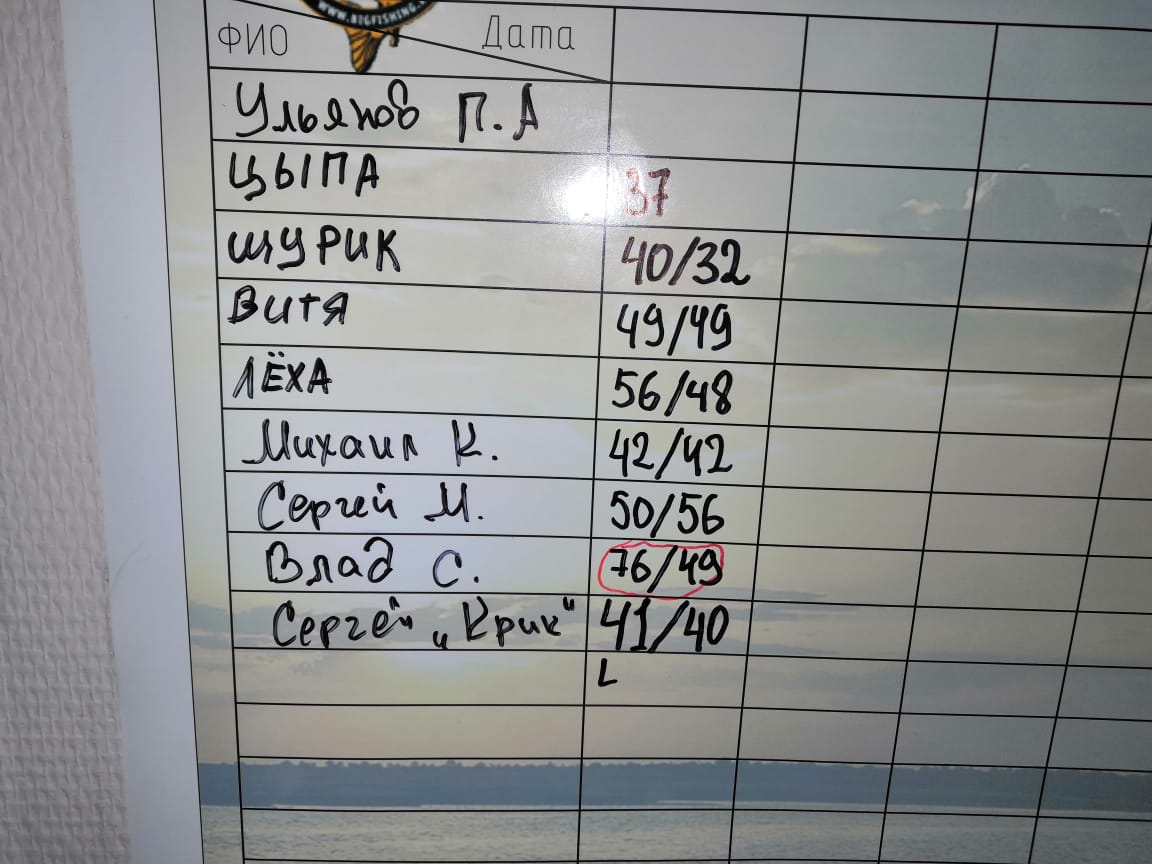 WWW.BIGFISHING.
ФИО Дата
Ульянов П.А
ЦЫПА 37
ШУРИК 40/32
ВИТЯ 49/49
ЛЁХА 56/48
Михаил К. 42/42
Сергей М. 50/56
Влад С. 76/49
Сергей „Крик" 41/40
L